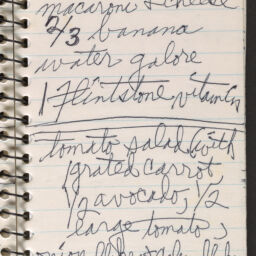 macaroni & cheese
2/3 banana
water galore
1 Flintstone vitamin
tomato salad (with
grated carrot,
1/2 avocado, 1/2
large tomato,
onion